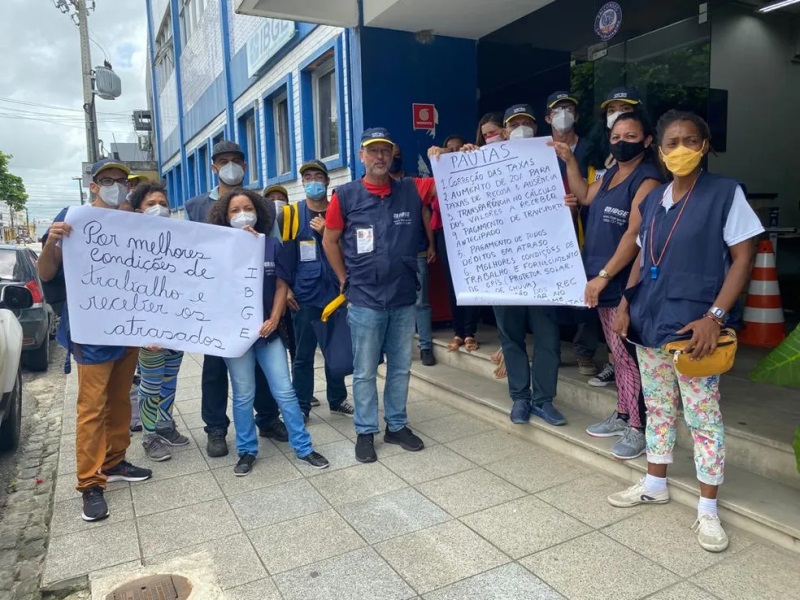 IBGE
Por melhores
condições de
trabalho e
receber os
atrasados
I
B
G
E
PAUTAS
1. CORREÇÃO DAS TAXAS
2. AUMENTO DE 20% PARA
TAXAS DE RECUSA E AUSÊNCIA
3. TRANSPARÊNCIA NO CÁLCULO
DOS VALORES A RECEBER
4. PAGAMENTO DE TRANSPORTE
ANTECIPADO
5. PAGAMENTO DE TODOS
DÉBITOS EM ATRASO
6. MELHORES CONDIÇÕES DE
TRABALHO E FORNECIMENTO
DE EPIS (PROTETOR SOLAR,
DE CHUVA)
IBGE
IBGE